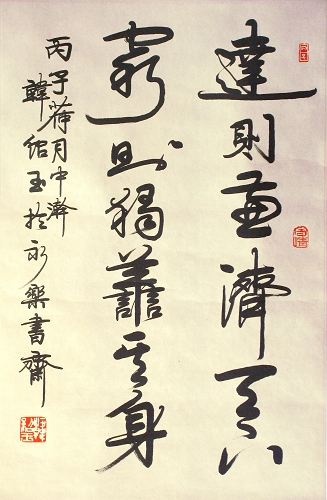 達則兼濟天下
窮則獨善其身
丙子荷月中澣
韓紹玉於永樂書齋